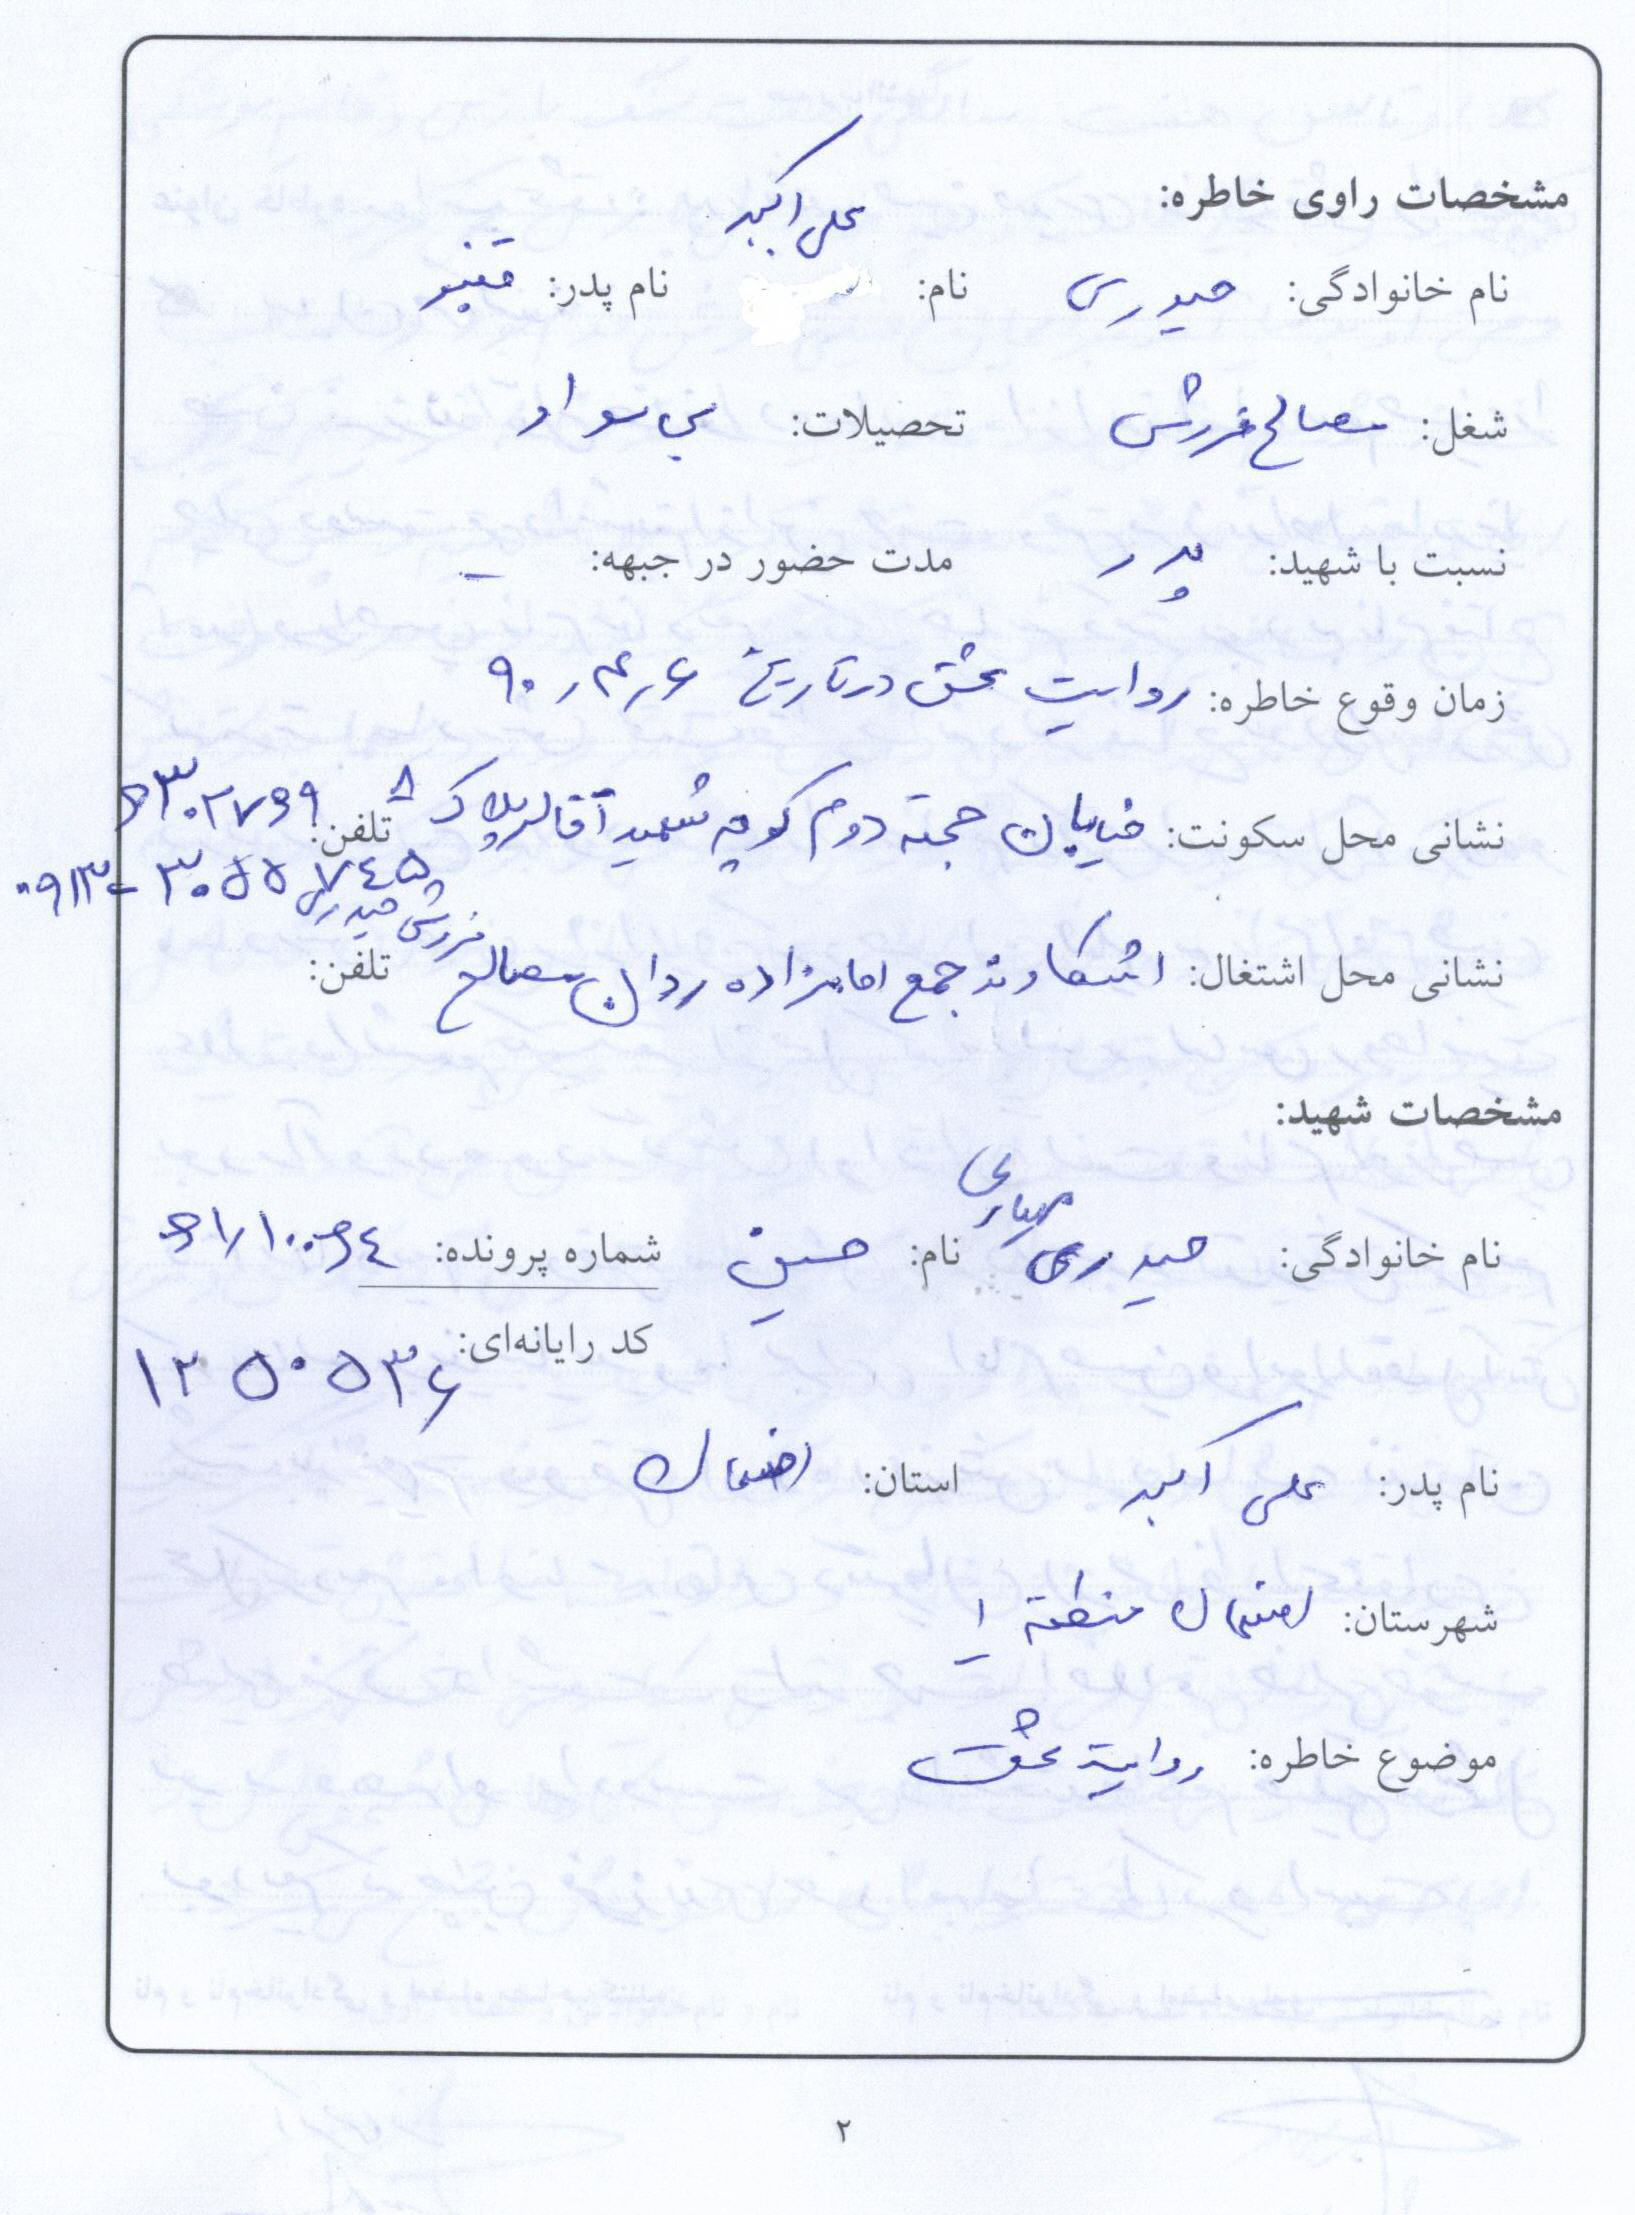 مشخصات راوی خاطره:
علی اکبر
نام خانوادگی: حیدری نام: نام پدر: قنبر
شغل: مصالح فروش تحصیلات: بی سواد
نسبت با شهید: پدر مدت حضور در جبهه: –
زمان وقوع خاطره: روایت عشق در تاریخ ۹۰٫۴٫۶
نشانی محل سکونت: خیابان حجته دوم کوچه شهید آقا پلاک ۸ تلفن:
۰۹۱۳-۳۰۵۵۷۴۵
فروشی حیدری
نشانی محل اشتغال: اشکاوند جمع امامزاده مصالح تلفن:
مشخصات شهید:
نام خانوادگی: حیدری نام: حسین شماره پرونده:
کد رایانه‌ای: ۱۲۵۰۵۳۶
نام پدر: علی اکبر استان: اصفهان
شهرستان: اصفهان منطقه ۱
موضوع خاطره: روایت عشق
۲